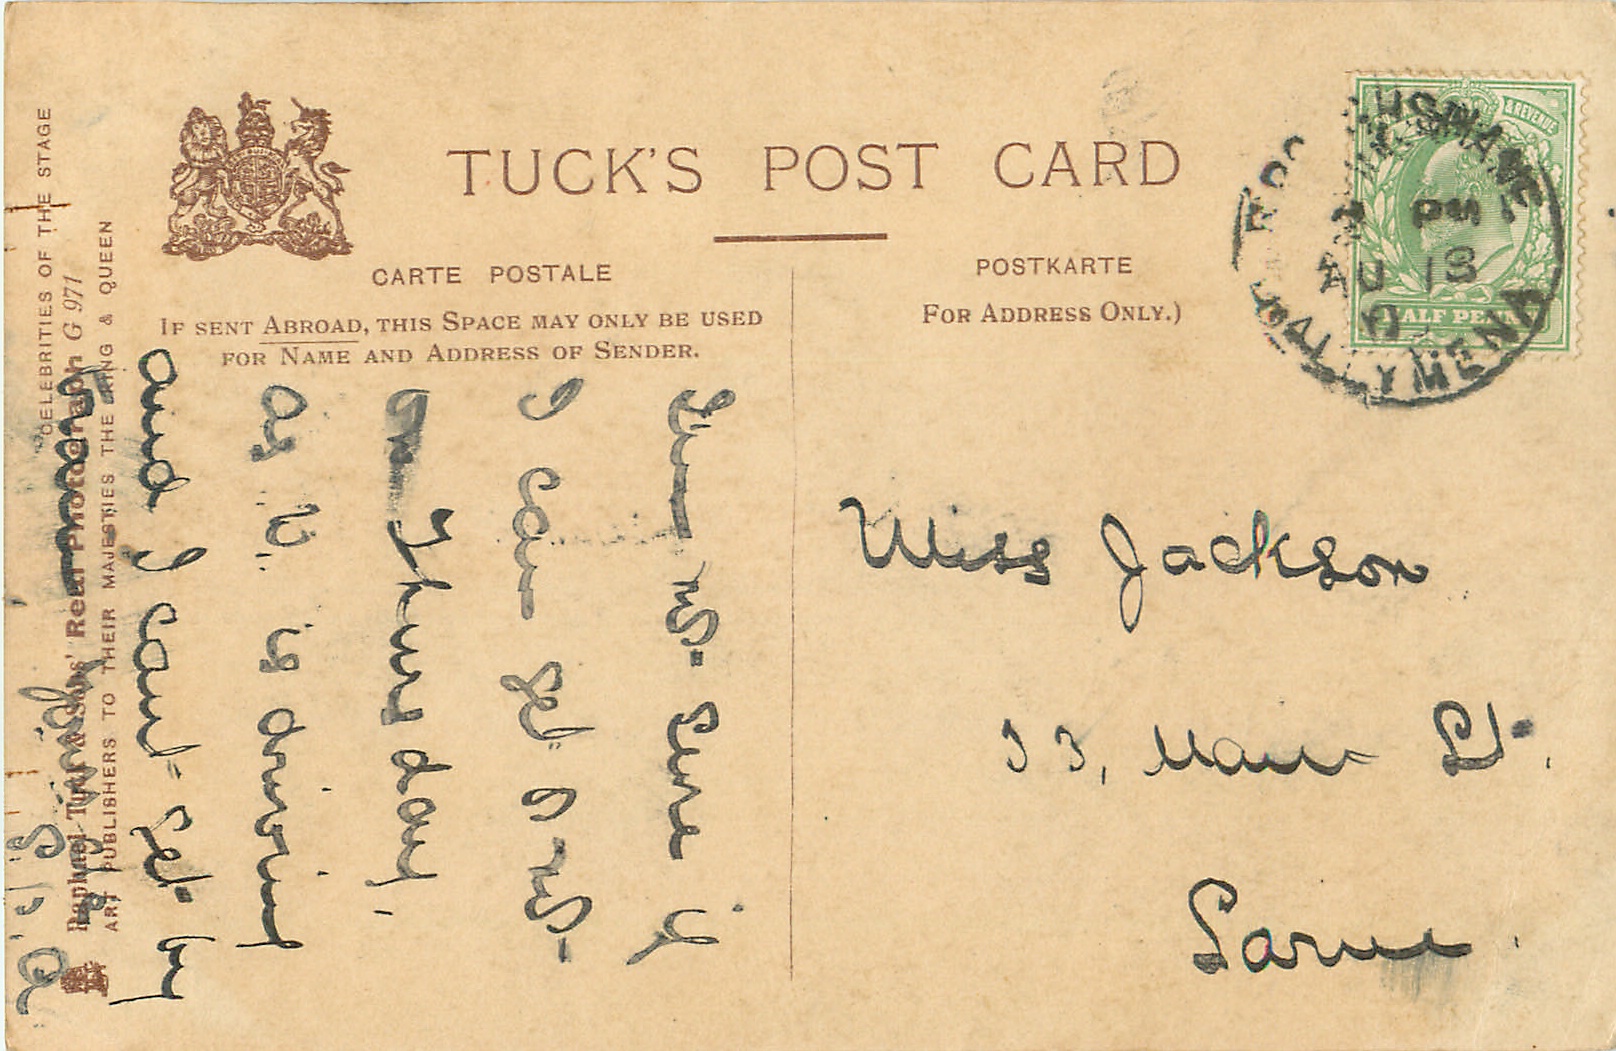 TUCK'S POST CARD
CARTE POSTALE
POSTKARTE
IF SENT ABROAD, THIS SPACE MAY ONLY BE USED
FOR NAME AND ADDRESS OF SENDER.
FOR ADDRESS ONLY.)
"CELEBRITIES OF THE STAGE
Raphael Tuck & Sons' Real Photograph G 971
ART PUBLISHERS TO THEIR MAJESTIES THE KING & QUEEN
& REVENUE
HALF PENNY
PM
AU 13
BALLYMENA
I'm not sure if
I can get out
on Thursday,
as V. is driving
and I can't get by
Miss Jackson
33, Main St.
Larne.